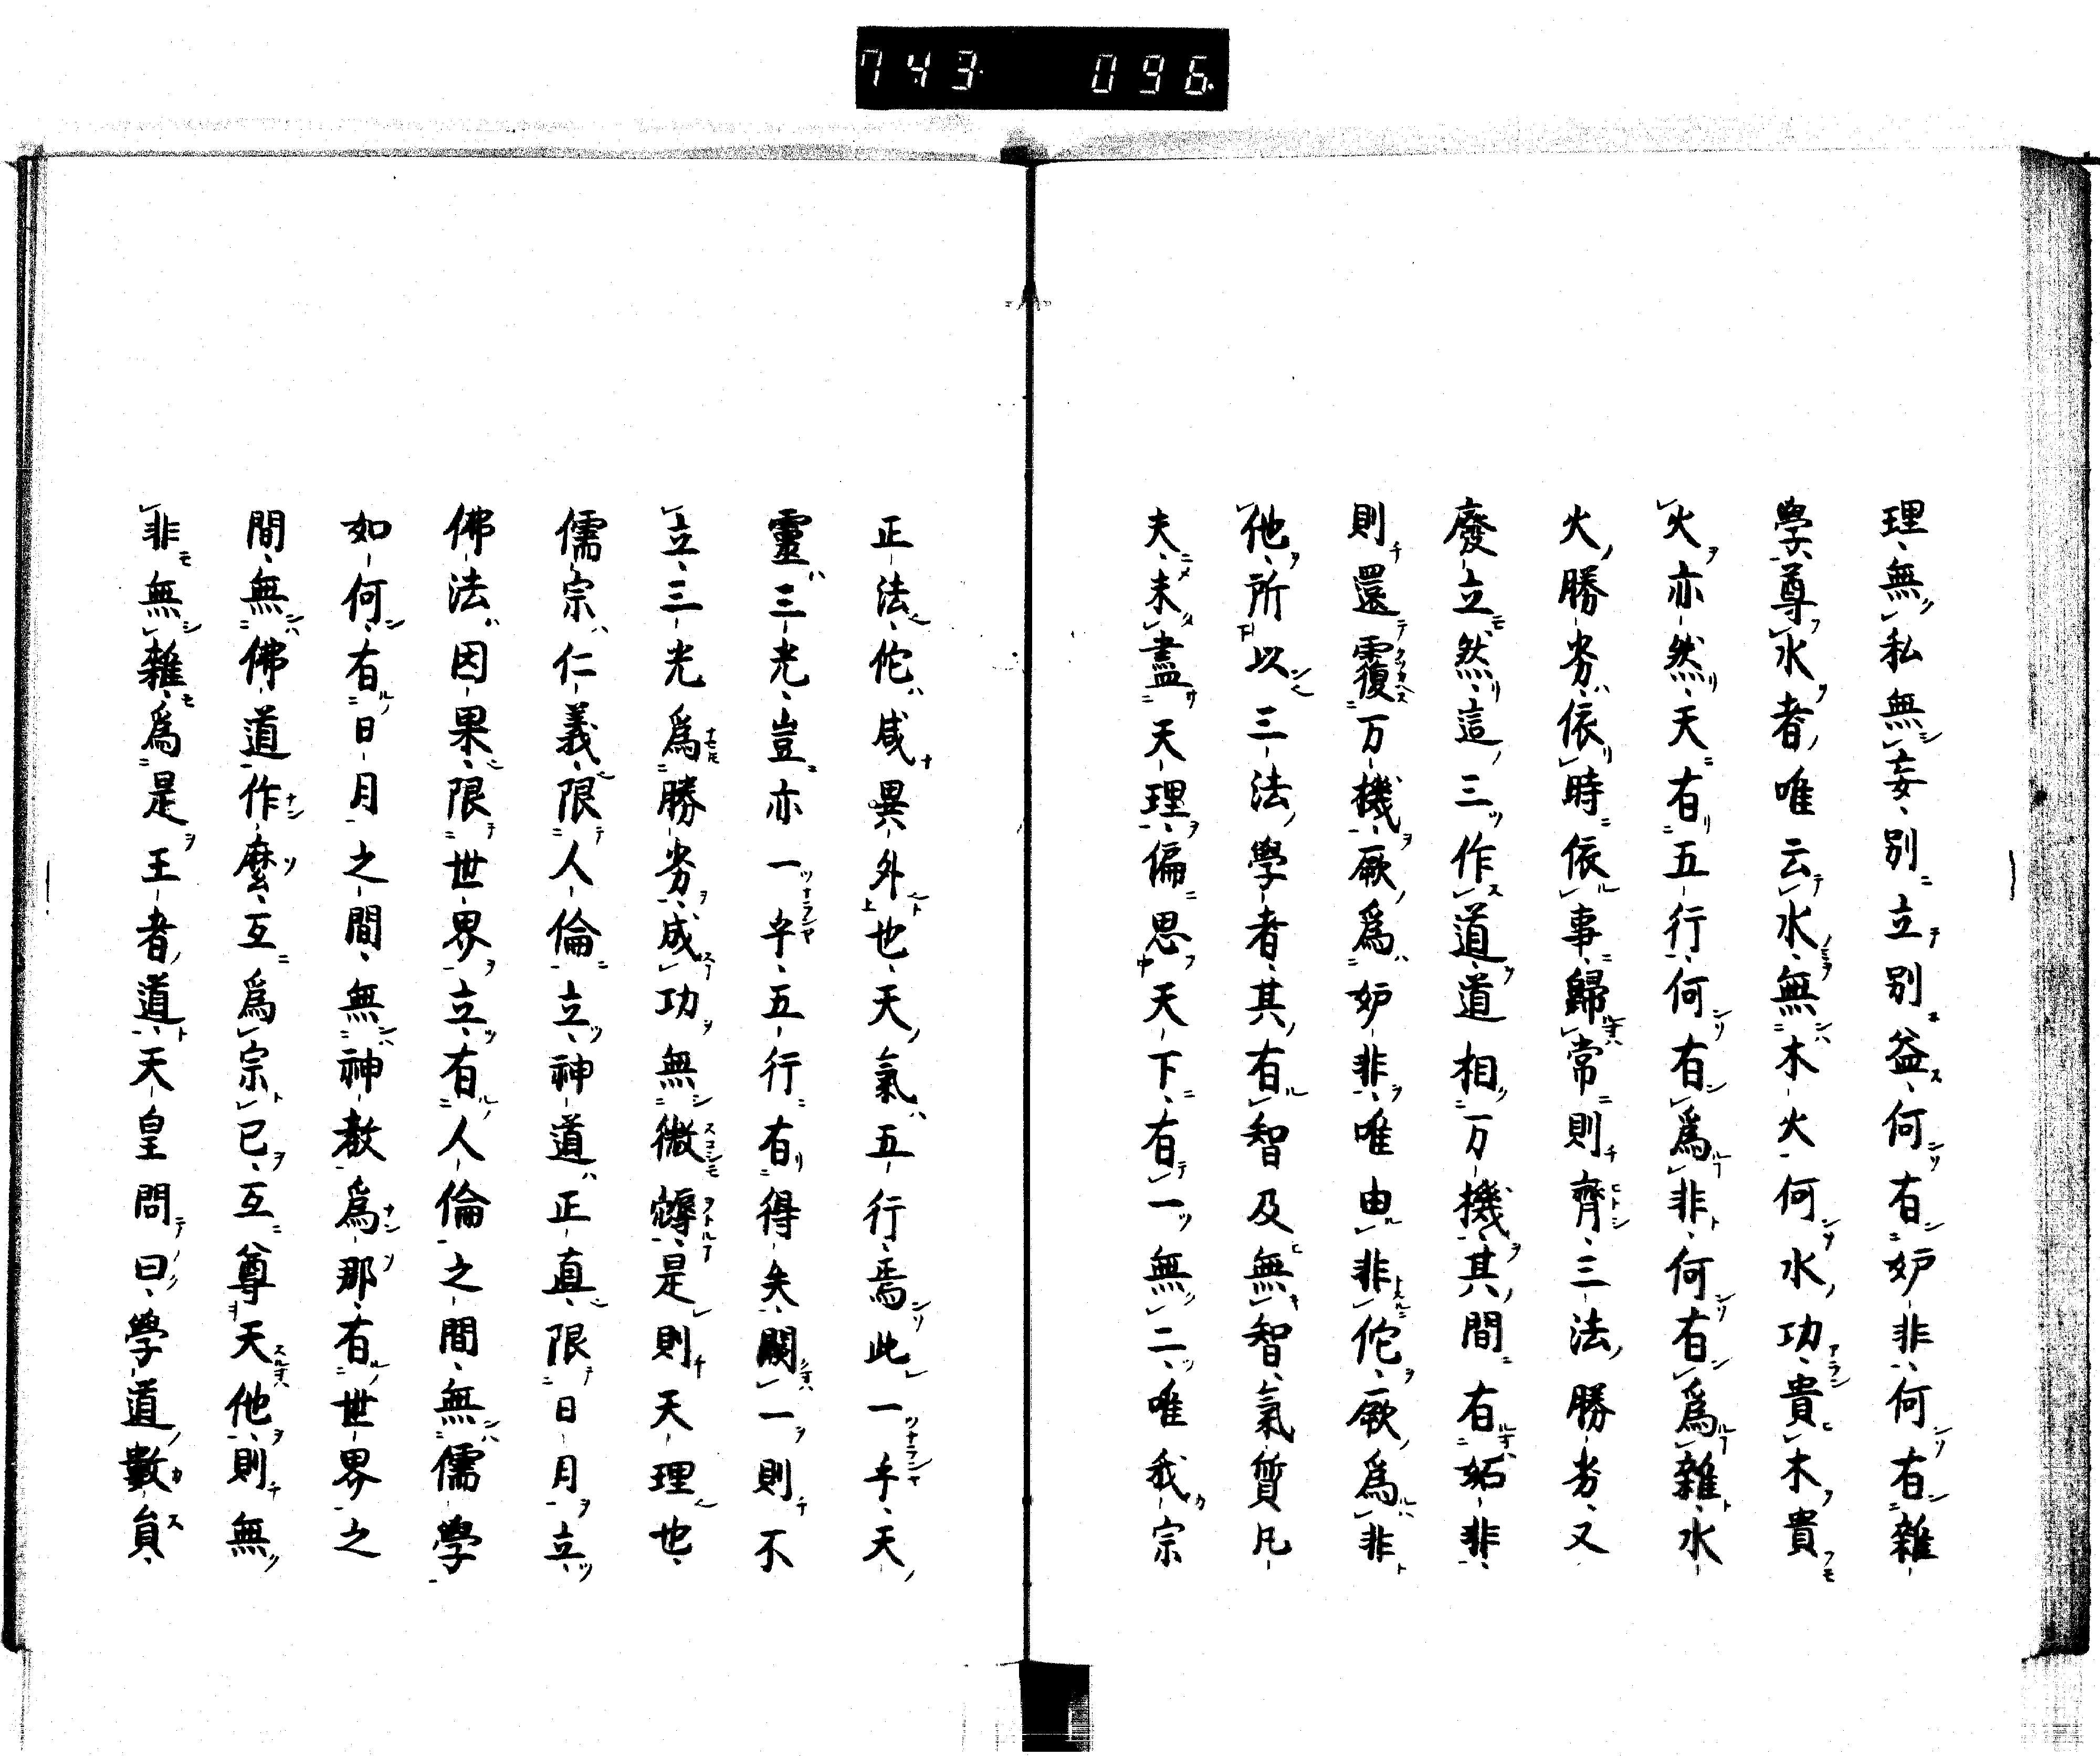 743 096
理無私無妄別立別益何有妒非何有雜
學尊水者唯云水無木火何水功貴木貴
火亦然天有五行何有為非何有為雜水
火勝劣依時依事歸常則齊三法勝劣又
廢立然這三作道道相万機其間有妬非
則還覆万機厥為妒非唯由非佗厥為非
他所以三法學者其有智及無智氣質凡
夫未盡天理偏思天下有一無二唯我宗
正法佗咸異外也天氣五行焉此一乎天
靈三光豈亦一乎五行有得失闕一則不
立三光為勝劣成功無微 是則天理也
儒宗仁義限人倫立神道正真限日月立
佛法因果限世界立有人倫之間無儒學
如何有日月之間無神教為那有世界之
間無佛道作麼互為宗已互尊天他則無
非無雜為是王者道天皇問曰學道數員